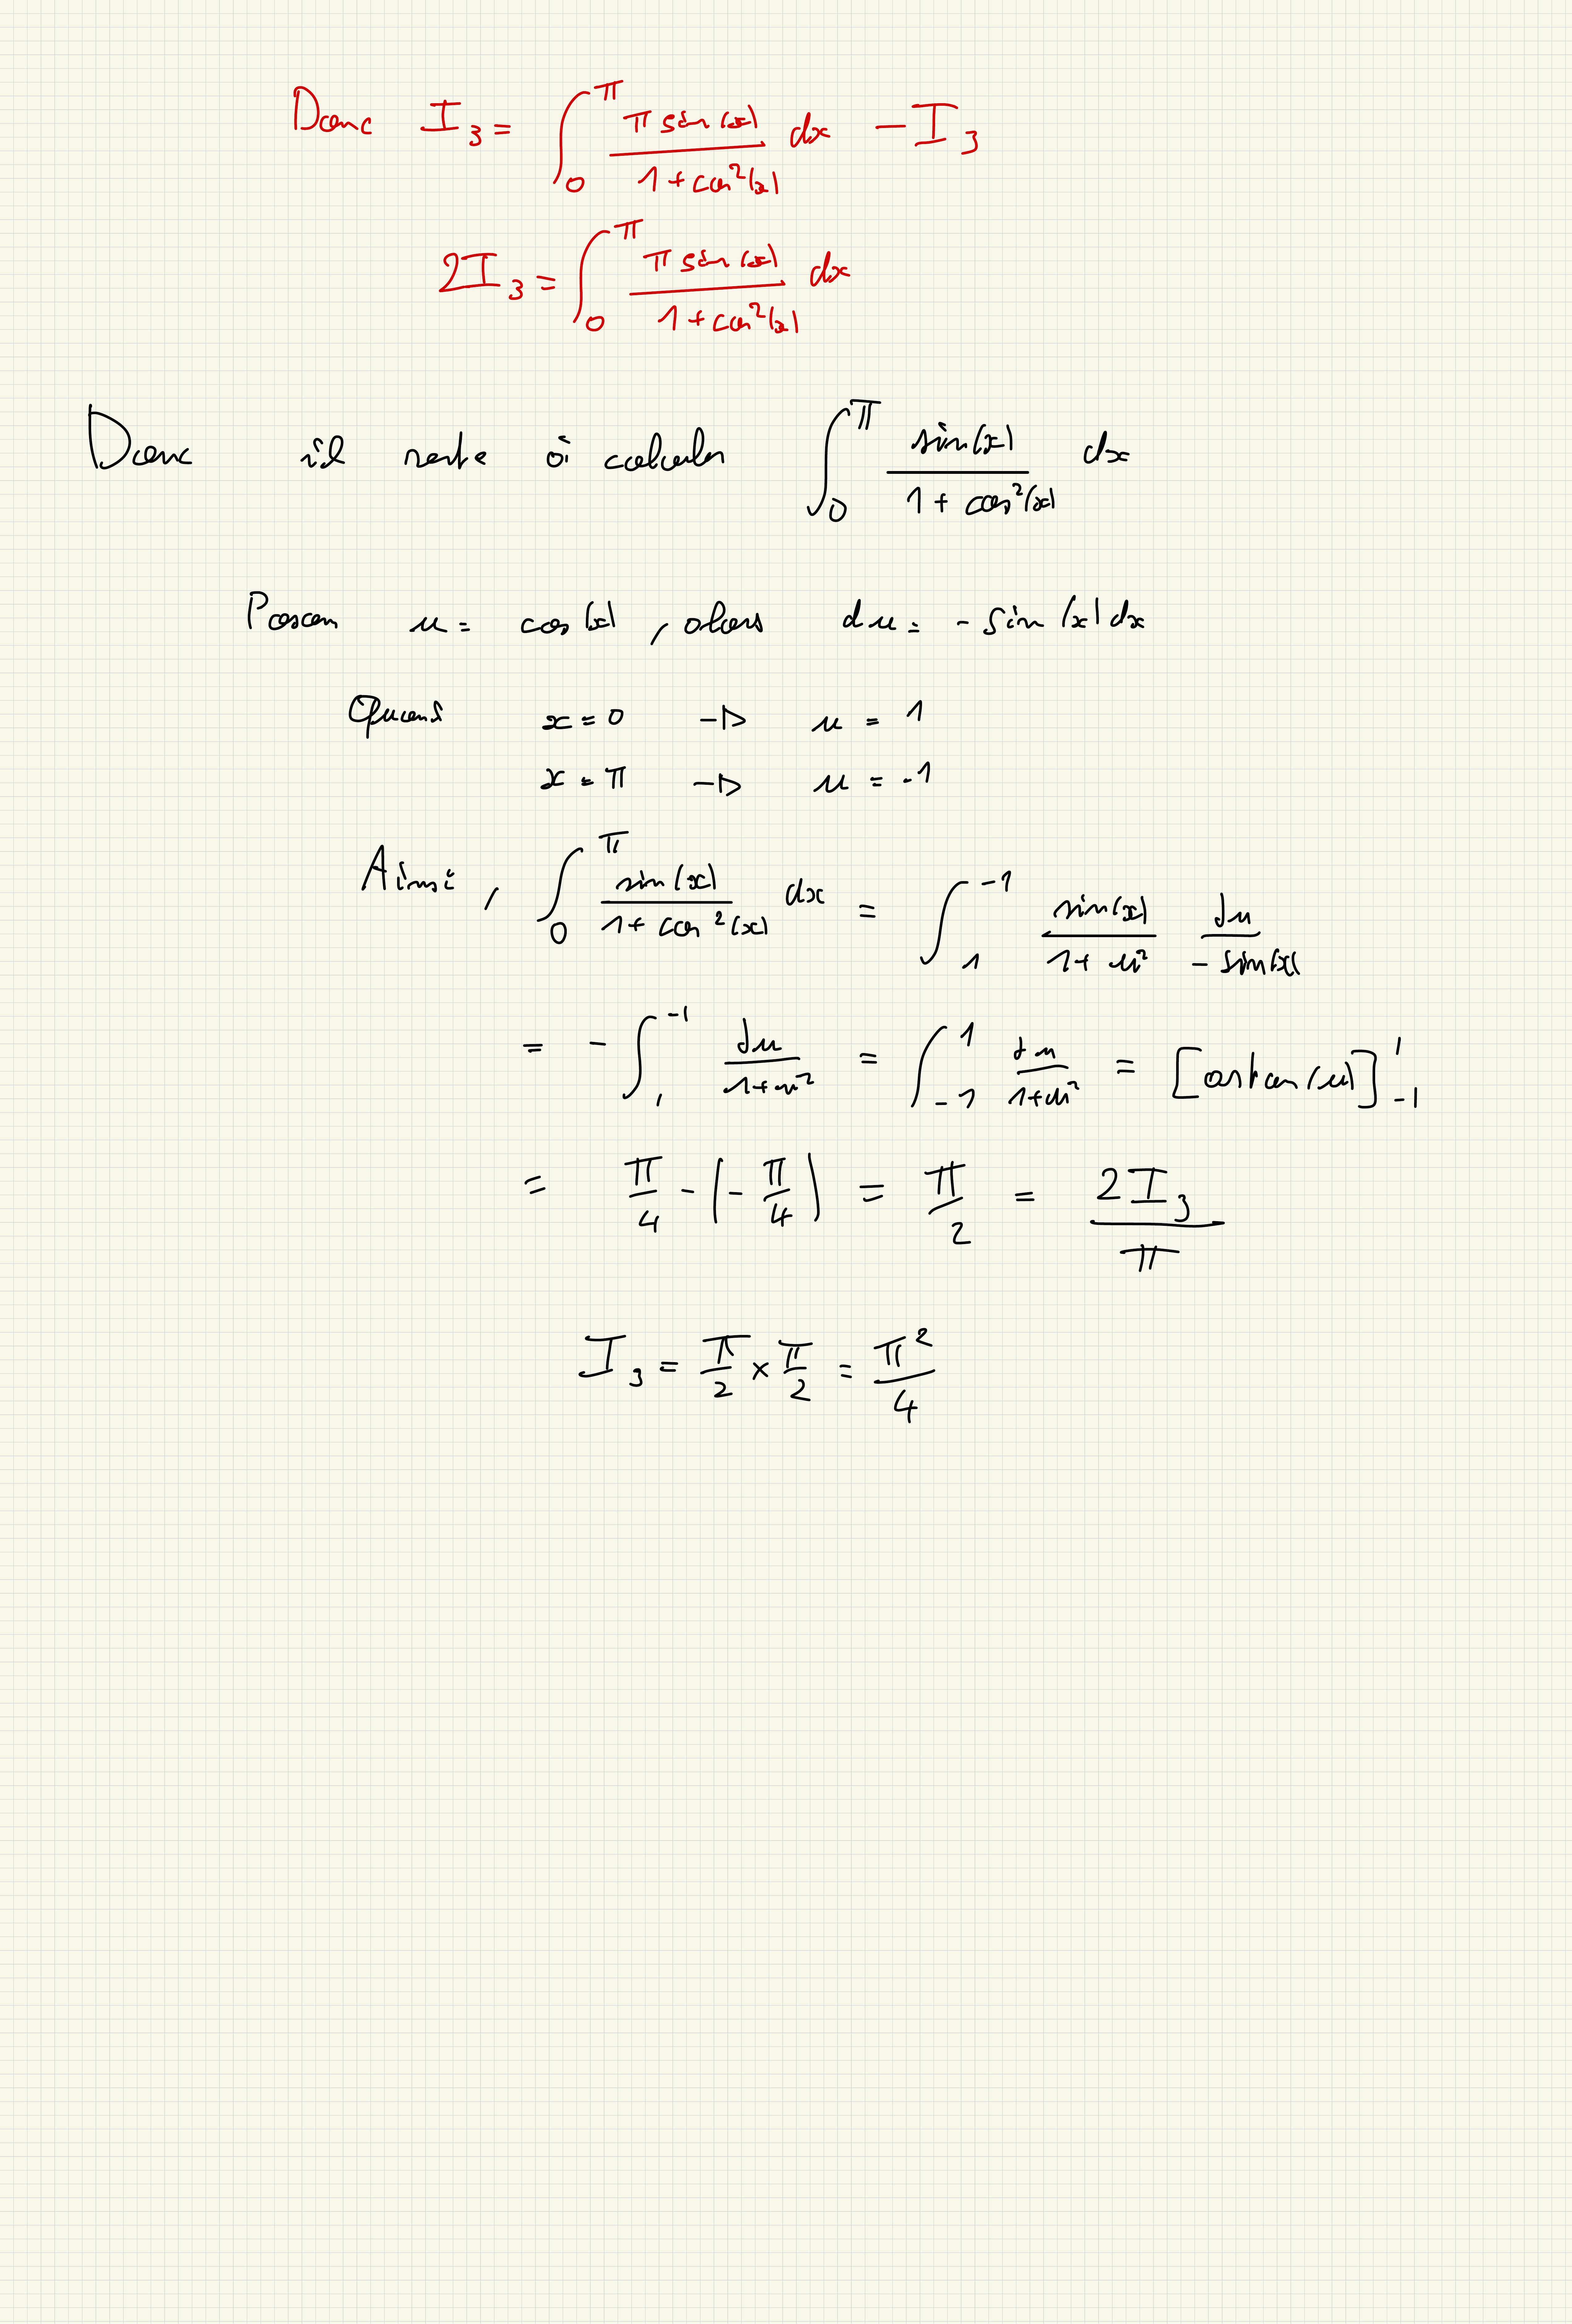 Donc I₃ = ∫₀^π (π sin(x))/(1 + cos²(x)) dx − I₃
2I₃ = ∫₀^π (π sin(x))/(1 + cos²(x)) dx
Donc il reste à calculer ∫₀^π sin(x)/(1 + cos²(x)) dx
Posons u = cos(x), alors du = - sin(x) dx
Quand x = 0 → u = 1
x = π → u = -1
Ainsi, ∫₀^π sin(x)/(1 + cos²(x)) dx = ∫₁^-1 sin(x)/(1 + u²) du/(- sin(x))
= - ∫₁^-1 du/(1 + u²) = ∫₋₁^1 du/(1 + u²) = [artan(u)]₋₁^1
= π/4 - (- π/4) = π/2 = 2I₃/π
I₃ = π/2 × π/2 = π²/4